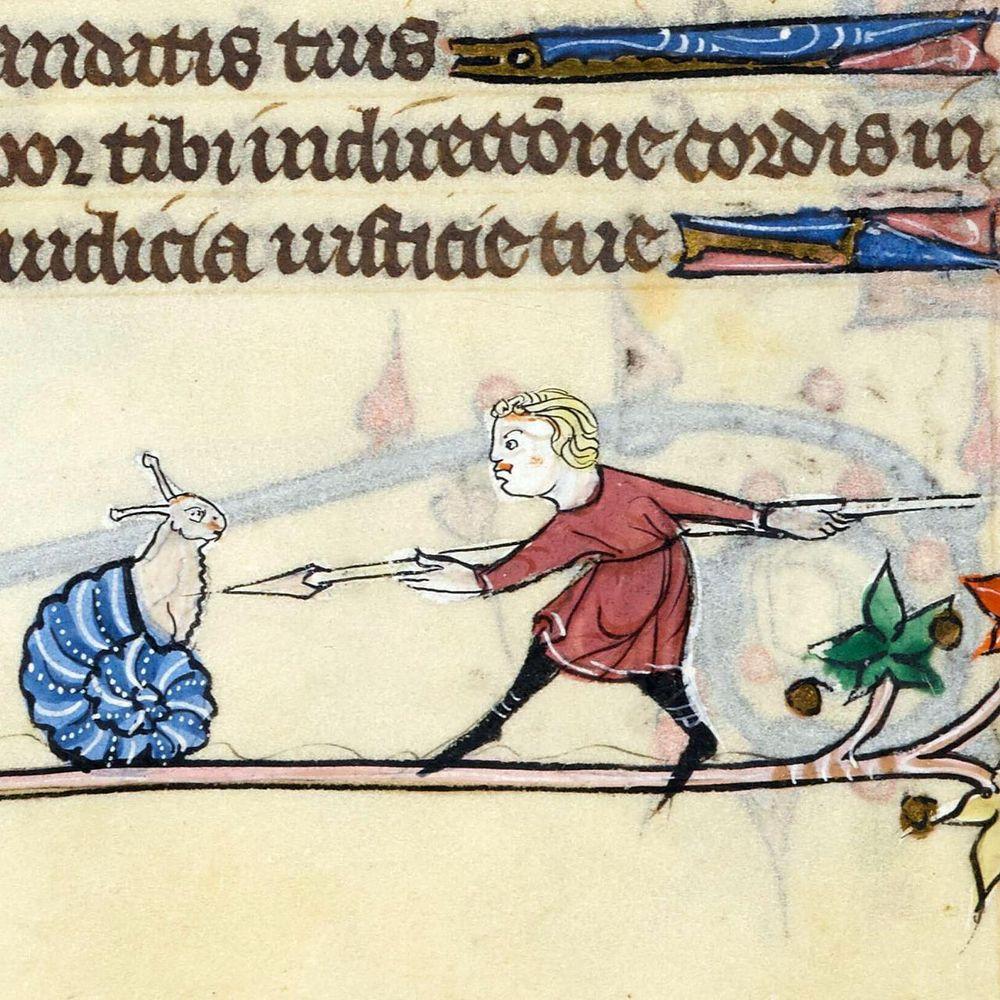 andatis tuis
bor tibi in direccōne cordis in
iudicia iusticie tue